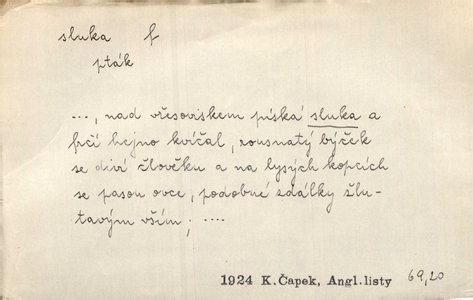 sluka f
pták
..., nad vřesoviskem píská sluka a
frčí hejno kvíčal, vousnatý býček
se diví člověku a na lysých kopcích
se pasou ovce, podobné zdálky žlu-
tavým vším; ....
1924 K.Čapek, Angl.listy 69,20